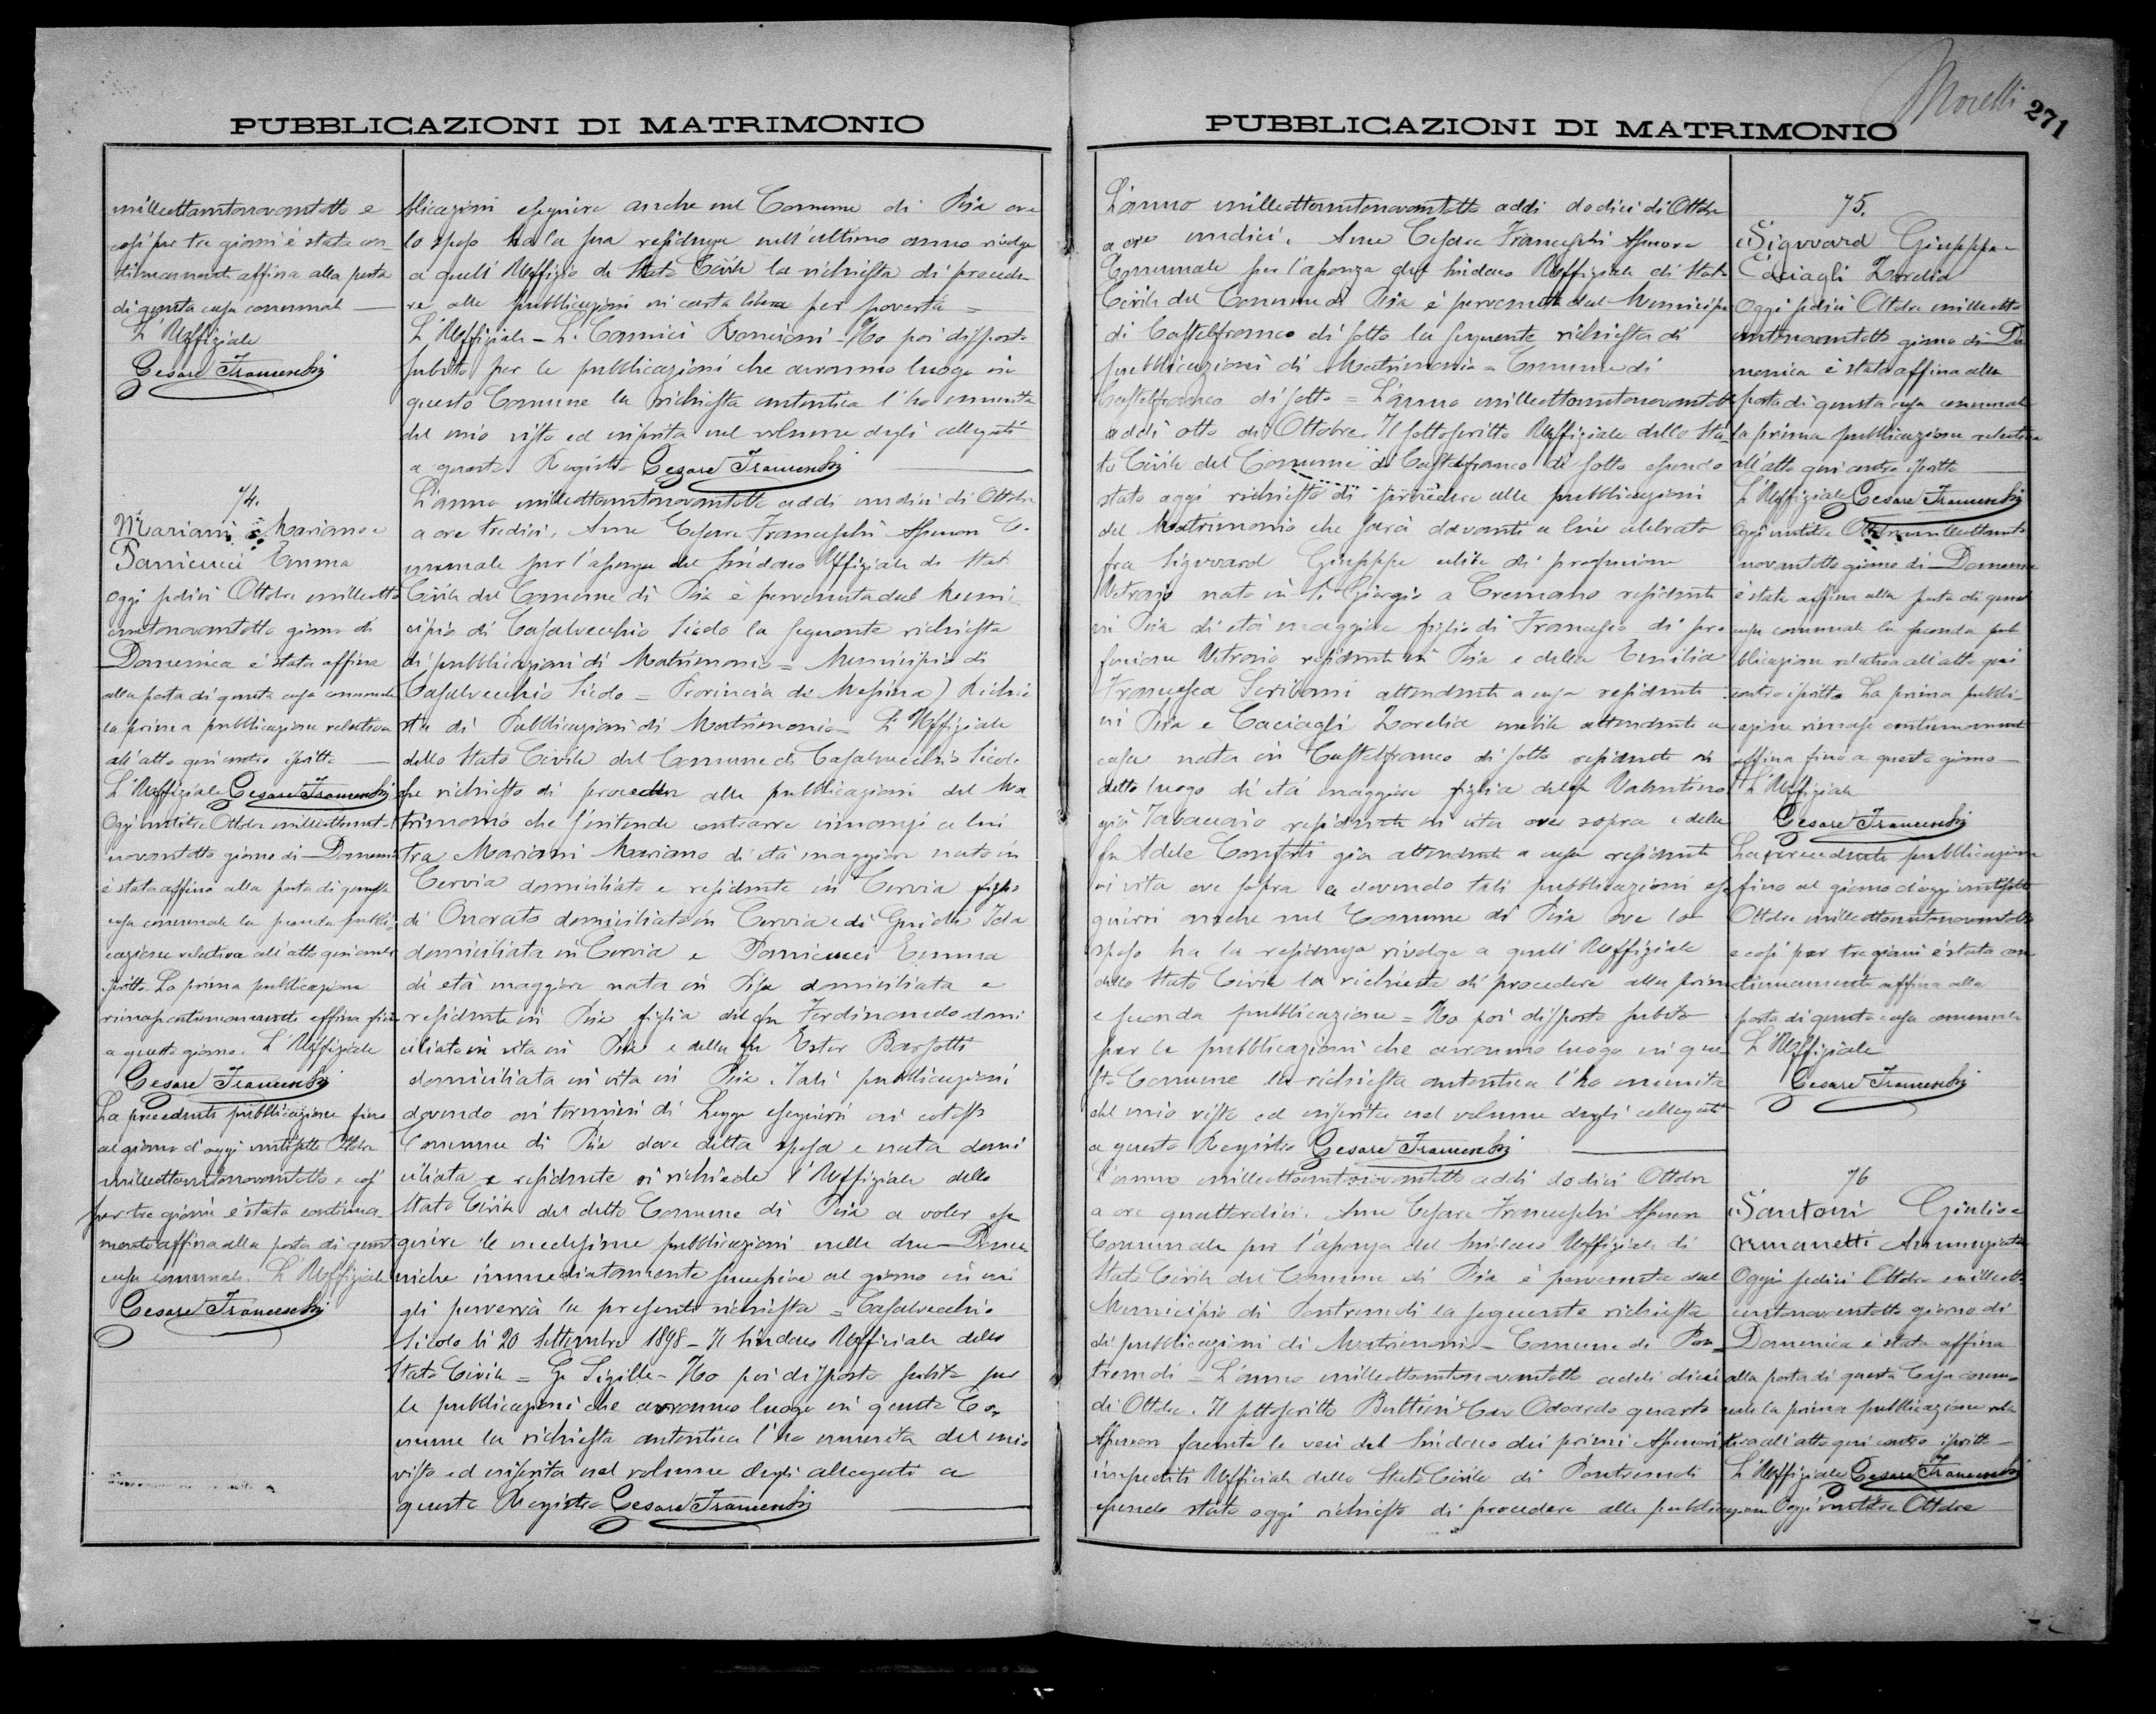 PUBBLICAZIONI DI MATRIMONIO
milleottocentonovantotto e
così per tre giorni è stata con
tinuamente affissa alla porta
di questa casa comunale
L'Uffiziale
Cesare Franceschi
blicazioni eseguire anche nel Comune di Pisa ove
lo sposo ha la sua residenza nell'ultimo anno rivolge
a quell'Uffizio di Stato Civile la richiesta di procede
re alle pubblicazioni in carta libera per povertà =
L'Uffiziale - L. Ronconi - Ho poi disposto
subito per le pubblicazioni che avranno luogo in
questo Comune la richiesta autentica l'ho munita
del mio visto ed inserita nel volume degli allegati
a questo Registro Cesare Franceschi
74.
Mariani Mariano e
Pannicucci Emma
Oggi sedici Ottobre milleotto
centonovantotto giorno di
Domenica è stata affissa
alla porta di questa casa comunale
la prima pubblicazione relativa
all'atto qui contro iscritto
L'Uffiziale Cesare Franceschi
Oggi ventitre Ottobre milleottocento
novantotto giorno di Domenica
è stata affissa alla porta di questa
casa comunale la seconda pubbli
cazione relativa all'atto qui contro
iscritto. La prima pubblicazione
rimase continuamente affissa fino
a questo giorno. L'Uffiziale
Cesare Franceschi
La precedente pubblicazione fino
al giorno d'oggi ventisette Ottobre
milleottocentonovantotto e così
per tre giorni è stata continua
mente affissa alla porta di questa
casa comunale. L'Uffiziale
Cesare Franceschi
L'anno milleottocentonovantotto addì undici di Ottobre
a ore tredici. Avanti Cesare Franceschi Assessore Co
munale per l'assenza del Sindaco Uffiziale di Stato
Civile del Comune di Pisa è pervenuta dal Muni
cipio di Casalvecchio Siculo la seguente richiesta
di pubblicazioni di Matrimonio = Municipio di
Casalvecchio Siculo = Provincia di Messina) Richie
sta di Pubblicazioni di Matrimonio - L'Uffiziale
dello Stato Civile del Comune di Casalvecchio Siculo
fu richiesto di procedere alle pubblicazioni del Ma
trimonio che s'intende contrarre innanzi a lui
tra Mariani Mariano di età maggiore nato in
Cervia domiciliato e residente in Cervia figlio
di Onorato domiciliato in Cervia e di Ida
domiciliata in Cervia e Pannicucci Emma
di età maggiore nata in Pisa domiciliata e
residente in Pisa figlia del fu Ferdinando domi
ciliato in vita in Pisa e della fu Ester Barsotti
domiciliata in vita in Pisa. Tali pubblicazioni
dovendo ai termini di Legge eseguirsi in cotesto
Comune di Pisa dove detta sposa è nata domi
ciliata e residente si richiede l'Uffiziale dello
Stato Civile del detto Comune di Pisa a voler ese
guire le medesime pubblicazioni nelle due Dome
niche immediatamente successive al giorno in cui
gli perverrà la presente richiesta = Casalvecchio
Siculo li 20 Settembre 1898 - Il Sindaco Ufficiale dello
Stato Civile = G. Sigillo - Ho poi disposto subito per
le pubblicazioni che avranno luogo in questo Co
mune la richiesta autentica l'ho munita del mio
visto ed inserita nel volume degli allegati a
questo Registro Cesare Franceschi
Morelli 271
PUBBLICAZIONI DI MATRIMONIO
L'anno milleottocentonovantotto addì dodici di Ottobre
a ore undici. Avanti Cesare Franceschi Assessore
Comunale per l'assenza del Sindaco Uffiziale di Stato
Civile del Comune di Pisa è pervenuta dal Municipio
di Castelfranco di sotto la seguente richiesta di
pubblicazioni di Matrimonio = Comune di
Castelfranco di sotto = L'anno milleottocentonovantotto
addì otto di Ottobre. Il sottoscritto Uffiziale dello Sta
to Civile del Comune di Castelfranco di sotto essendo
stato oggi richiesto di procedere alle pubblicazioni
del Matrimonio che sarà davanti a lui celebrato
fra Sigward Giuseppe celibe di professione
Vetraio nato in S. Giorgio a Cremano residente
in Pisa di età maggiore figlio di Francesco di pro
fessione Vetraio residente in Pisa e della Emilia
Francesca Scrivani attendente a casa residente
in Pisa e Caciagli Zorelia nubile attendente a
casa nata in Castelfranco di sotto residente in
detto luogo di età maggiore figlia del fu Valentino
già Tabaccaio residente in vita ove sopra e della
fu Adele Conforti già attendente a casa residente
in vita ove sopra e dovendo tali pubblicazioni ese
guirsi anche nel Comune di Pisa ove lo
sposo ha la residenza rivolge a quell'Uffiziale
dello Stato Civile la richiesta di procedere alla prima
e seconda pubblicazione = Ho poi disposto subito
per le pubblicazioni che avranno luogo in que
sto Comune la richiesta autentica l'ho munita
del mio visto ed inserita nel volume degli allegati
a questo Registro Cesare Franceschi
75.
Sigward Giuseppe e
Caciagli Zorelia
Oggi sedici Ottobre milleotto
centonovantotto giorno di Do
menica è stata affissa alla
porta di questa casa comunale
la prima pubblicazione relativa
all'atto qui contro iscritto
L'Uffiziale Cesare Franceschi
Oggi ventitre Ottobre milleottocento
novantotto giorno di Domenica
è stata affissa alla porta di questa
casa comunale la seconda pub
blicazione relativa all'atto qui
contro iscritto La prima pubbli
cazione rimase continuamente
affissa fino a questo giorno
L'Uffiziale
Cesare Franceschi
La precedente pubblicazione
fino al giorno d'oggi ventisette
Ottobre milleottocentonovantotto
e così per tre giorni è stata con
tinuamente affissa alla
porta di questa casa comunale
L'Uffiziale
Cesare Franceschi
L'anno milleottocentonovantotto addì dodici Ottobre
a ore quattordici. Avanti Cesare Franceschi Assessore
Comunale per l'assenza del Sindaco Uffiziale di
Stato Civile del Comune di Pisa è pervenuta dal
Municipio di Pontremoli la seguente richiesta
di pubblicazioni di Matrimonio - Comune di Pon
tremoli = L'anno milleottocentonovantotto addì dieci
di Ottobre. Il sottoscritto Buttini Cav Odoardo quarto
Assessore facente le veci del Sindaco dei primi Assessori
impediti Ufficiale dello Stato Civile di Pontremoli
essendo stato oggi richiesto di procedere alle pubblicazioni
76
Santoni Giulio e
Annunziata
Oggi sedici Ottobre milleotto
centonovantotto giorno di
Domenica è stata affissa
alla porta di questa Casa comu
nale la prima pubblicazione rela
tiva all'atto qui contro iscritto
L'Uffiziale Cesare Franceschi
Oggi ventitre Ottobre